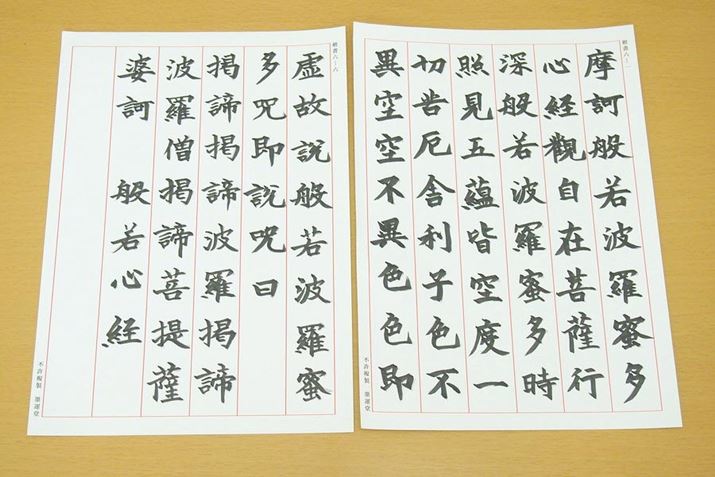 楷書六ー一
摩訶般若波羅蜜多
心經觀自在菩薩行
深般若波羅蜜多時
照見五蘊皆空度一
切苦厄舎利子色不
異空空不異色色即
不許複製 墨運堂
楷書六ー六
虚故説般若波羅蜜
多呪即説呪曰
掲諦掲諦波羅掲諦
波羅僧掲諦菩提薩
婆訶 般若心経
不許複製 墨運堂